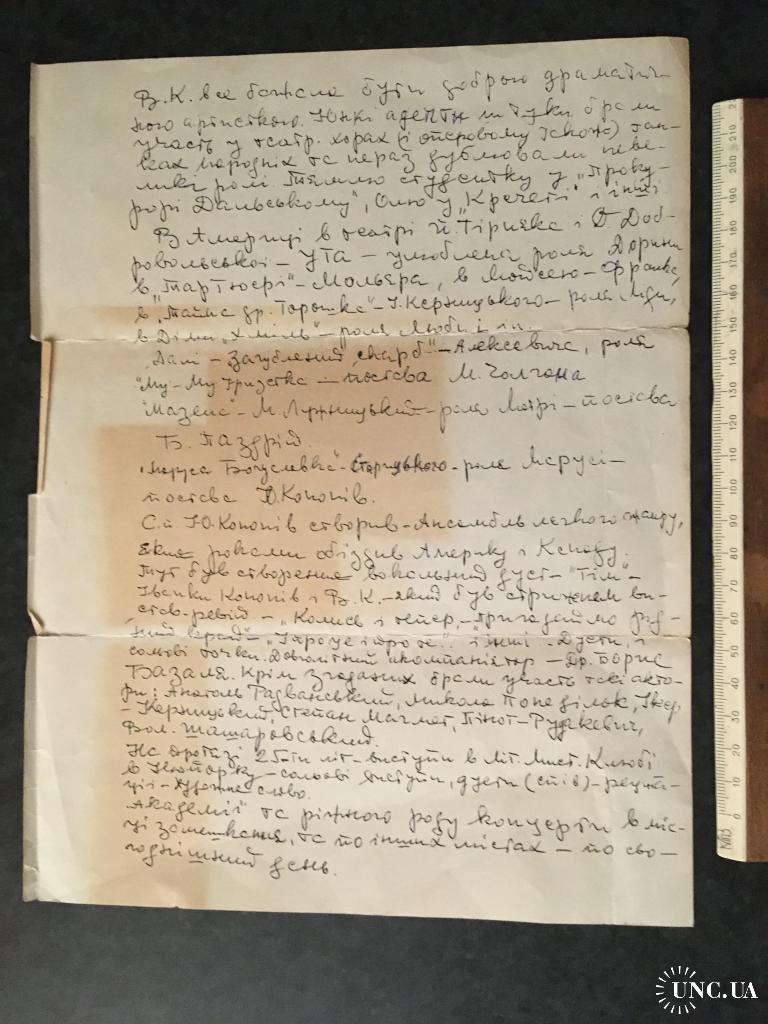 В.К. все бажала бути доброю драматич
ною артисткою. Юнкі адепти штуки брали
участь у театр. хорах (і оперовому також) тан-
ках народніх та нераз дублювали неве-
ликі ролі. Тямлю студентку у „Проку-
рорі Дальському", Олю у „Кречеті" і інші
В Америці в театрі Й. Гірняка і О. Доб-
ровольської – УТА – улюблена роля Дорини
в „Тартюфі" – Мольєра, в Мойсею – Франка,
в „Тайна др. Горошка" – І. Керницького – роля Лиди,
в Діми „Хміль" – роля Люби і ін.
Далі – Загублений скарб" – Алексевича, роля
"Му-Му Гризетка – постава М. Чолгана
"Мазепа" – М. Лужницький – роля Мотрі – постава
Б. Паздрій.
"Маруся Богуславка" – Старицького – роля Марусі –
постава Ю. Кононів.
С.п Ю. Кононів створив – Ансамбль легкого жанру,
який роками обїздив Америку і Канаду.
Тут був створений вокальний дует – "Тім" –
Іванки Кононів і В.К. – який був стрижнем ви-
став-ревій – „Колись і тепер, – Пригадаймо рід-
ний край – і інші. Дуети, і
сольові точки. Довголітний акомпаніятор – Др. Борис
Базаля. Крім згаданих брали участь такі акто-
ри: Анатоль Радванський, Микола Понеділок, Ікер
– Керницький, Степан Піпот-Рудакевич,
Вол. Шашаровський.
На протязі 25-ти літ – виступи в Літ. Мист. Клюбі
в Нюйорку – сольові виступи, дуети (спів) – рецита-
ції – Художнє слово.
„Академії" та ріжного роду концерти в міс-
ці замешкання, та по інших містах – по сьо-
годнішний день.
210
200
190
180
170
160
150
140
130
120
110
100
90
80
70
60
50
40
30
20
10
0
UNC.UA